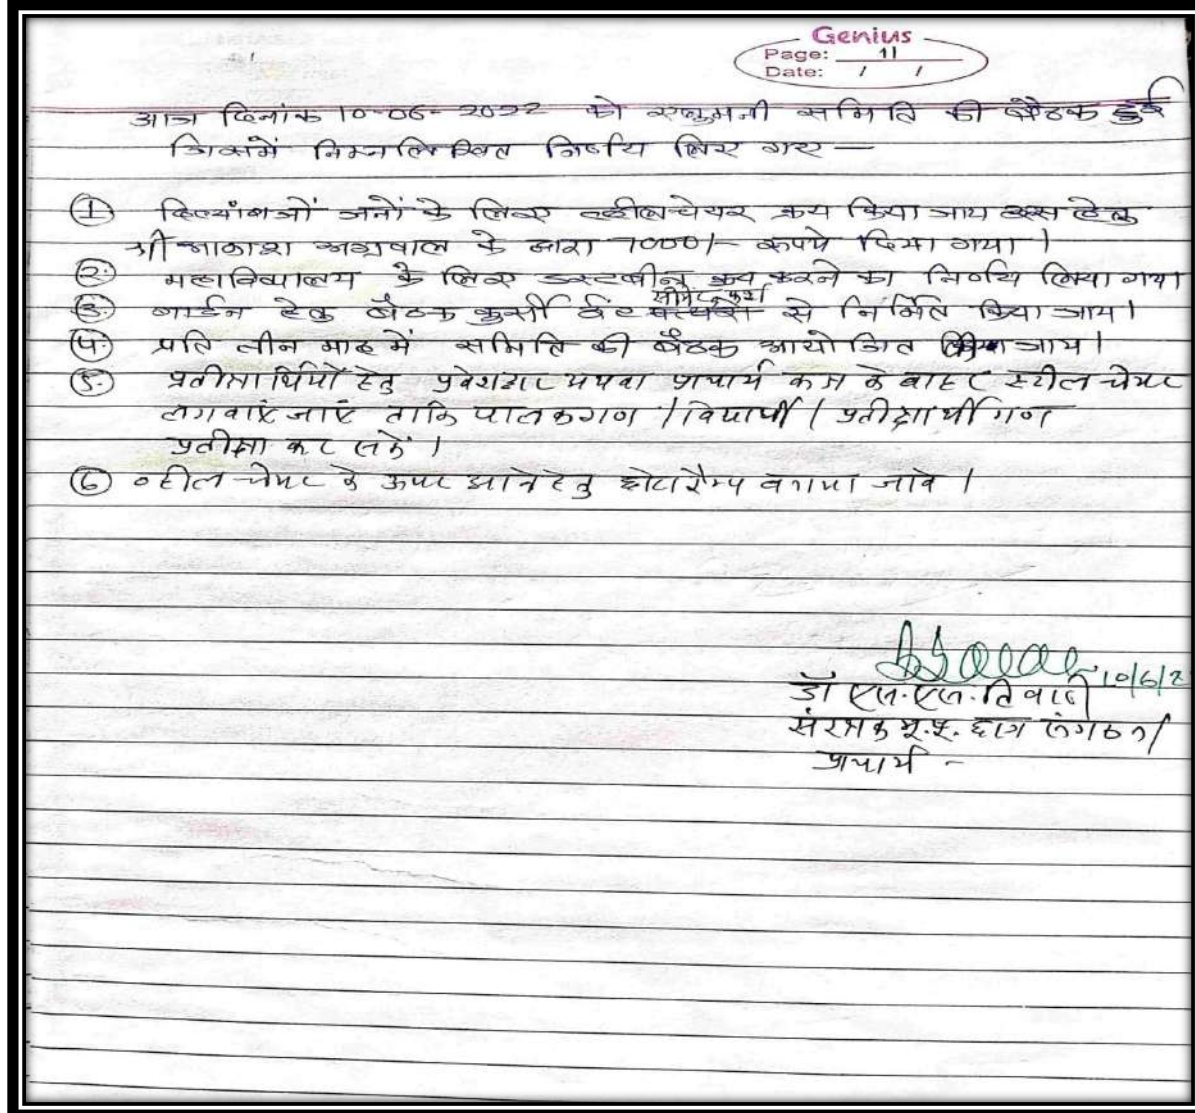 Genius
Page: 11
Date: / /
आज दिनांक 10-06-2022 को एल्युमनी समिति की बैठक हुई
जिसमें निम्नलिखित निर्णय लिए गए —
① दिव्यांगजों जनों के लिए व्हीलचेयर क्रय किया जाय इस हेतु
श्री आकाश अग्रवाल के द्वारा 7000/- रूपये दिया गया।
②. महाविद्यालय के लिए डस्टबीन क्रय करने का निर्णय लिया गया
③. गार्डन हेतु बैठक कुर्सी ईंट सीमेंट से निर्मित किया जाय।
④. प्रति तीन माह में समिति की बैठक आयोजित किया जाय।
⑤. प्रतीक्षार्थियों हेतु प्रवेशद्वार अथवा प्राचार्य कक्ष के बाहर स्टील चेयर
लगवाएं जाएं ताकि पालकगण / विद्यार्थी / प्रतीक्षार्थी गण
प्रतीक्षा कर सकें।
⑥ व्हील चेयर के ऊपर आने हेतु छोटा रैम्प बनाया जावे।
10/6/2
डॉ एस.एल.तिवारी
संरक्षक भू.पू. छात्र संगठन/
प्राचार्य -